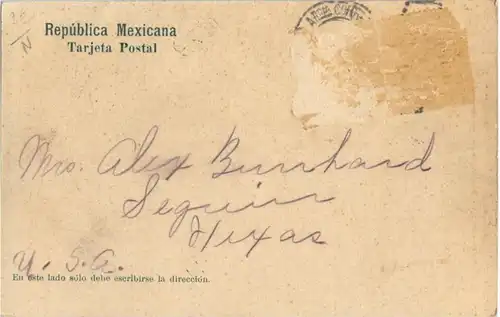 República Mexicana
Tarjeta Postal
Mrs. Alex Burnhard
Seguin
Texas
U. S. A.
En este lado sólo debe escribirse la dirección.